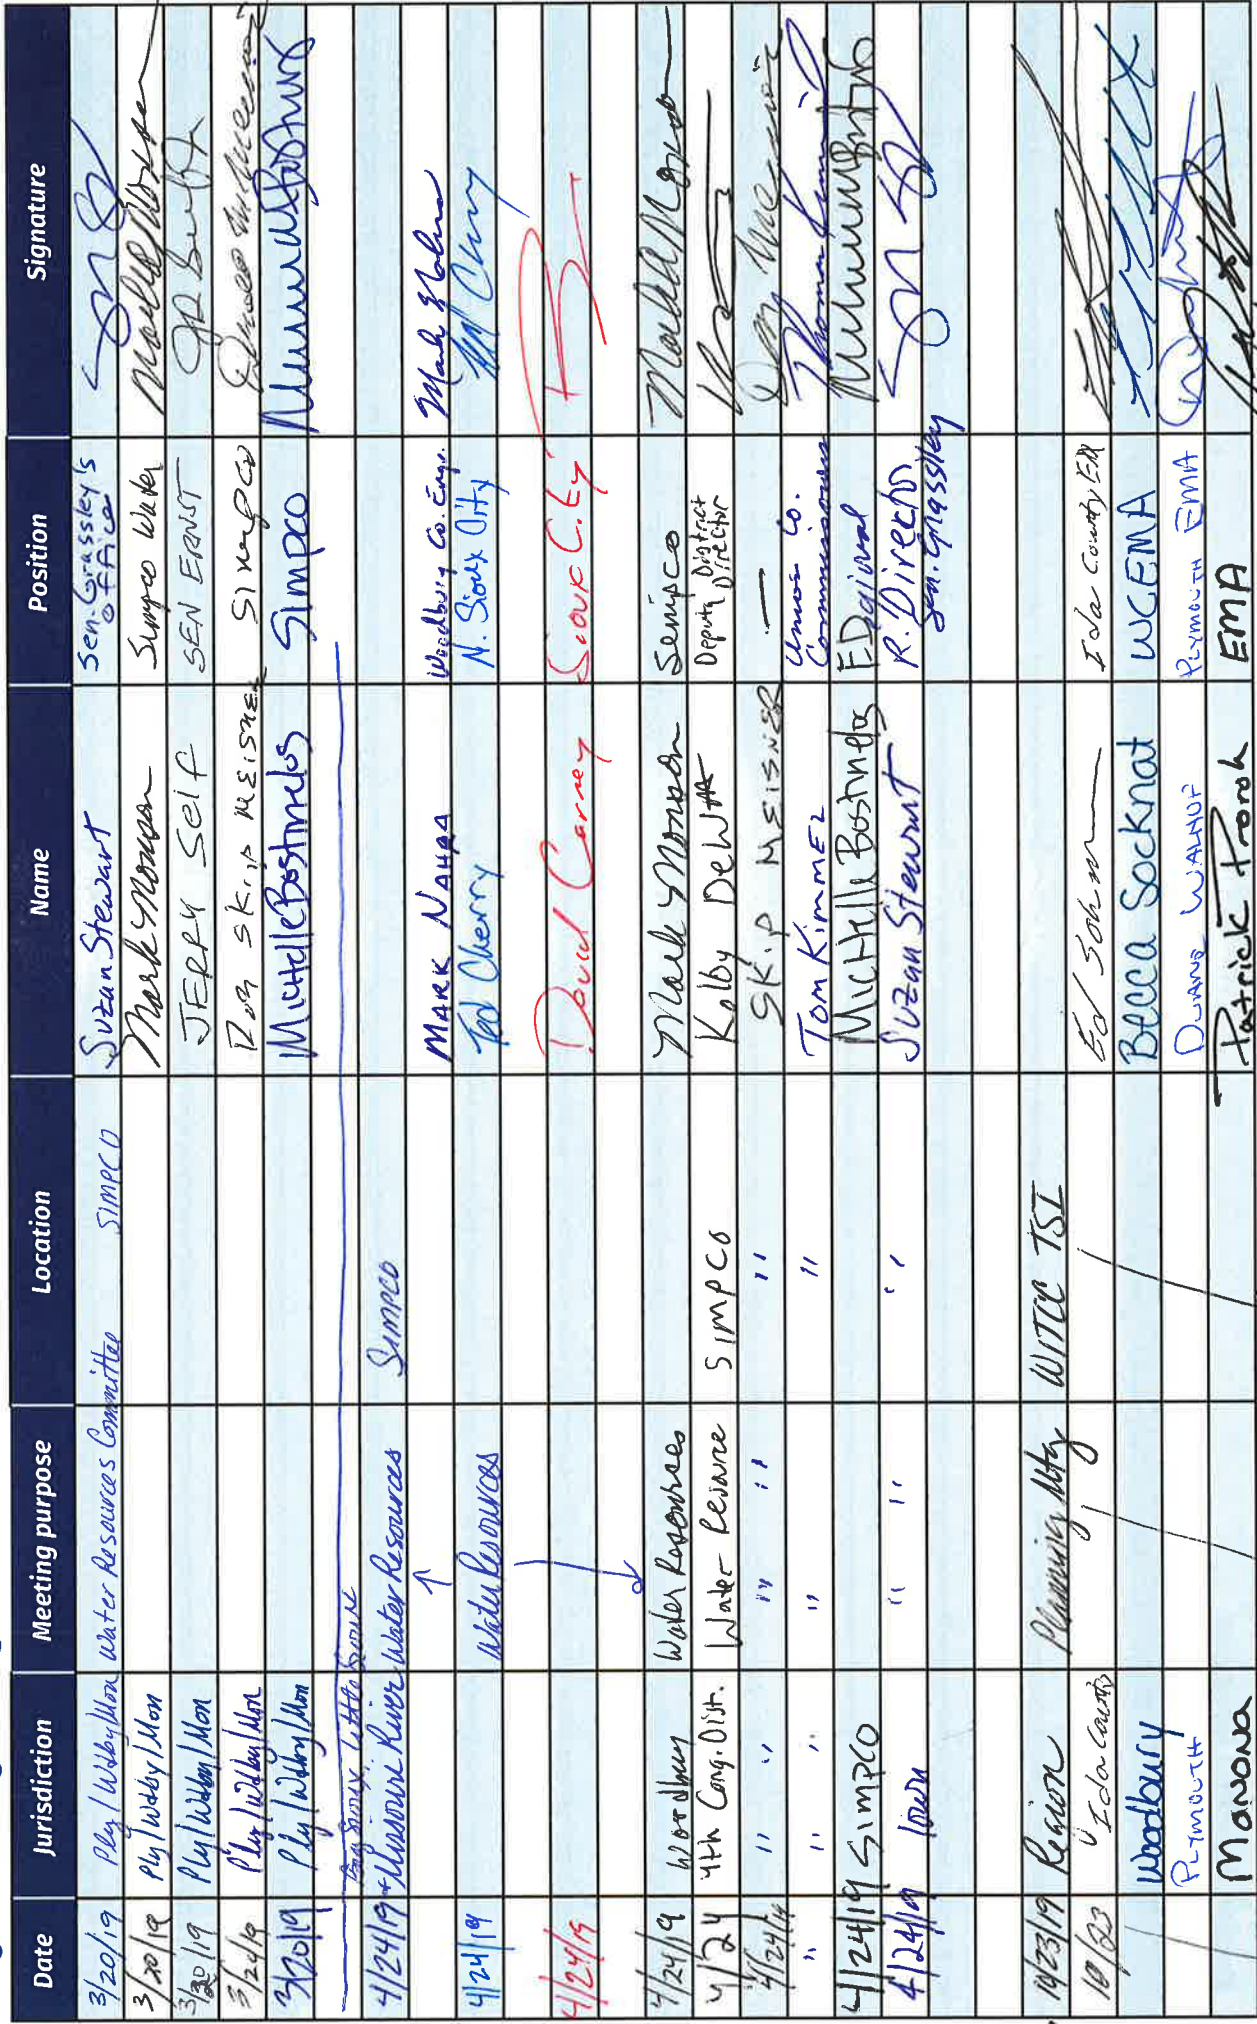 Date Jurisdiction Meeting purpose Location Name Position Signature
3/20/19 Ply/Wdby/Mon Water Resources Committee SIMPCO Suzan Stewart Sen. Grassley's office
3/20/19 Ply/Wdby/Mon Mark Monson Simpco Water
3/20/19 Ply/Wdby/Mon JERRY Self SEN ERNST
3/20/19 Ply/Wdby/Mon Skip MEISNER SIMPCO
3/20/19 Ply/Wdby/Mon Michelle Bostinelos Simpco
Big Sioux, Little Sioux
4/24/19 + Missouri River Water Resources SIMPCO
MARK NAHRA Woodbury Co. Engr.
4/24/19 Water Resources Ted Cherry N. Sioux City
4/24/19 David Carney Sioux City
4/24/19 Woodbury Water Resources Mark Monson Simpco
4/24 4th Cong. Dist. Water Resource SIMPCO Kolby DeWitt Deputy District Director
4/24/19 " " " " " " Skip MEISNER —
" " " " " TOM KIMMEL Union Co. Commissioner
4/24/19 SIMPCO Michelle Bostinelos ED
4/24/19 Iowa " " " Suzan Stewart R. Director Sen. Grassley
10/23/19 Region Planning Mtg WITCC TSI
10/23 Ida County Ed Ida County EM
Woodbury Becca Socknat WCEMA
PLYMOUTH DUANE WALHOF PLYMOUTH EMA
MONONA Patrick Prorok EMA